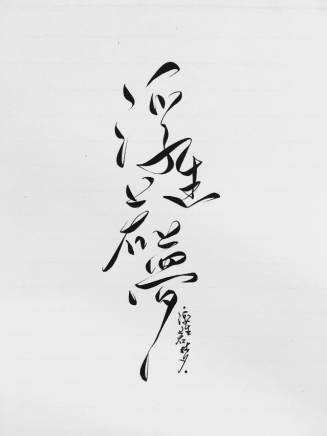 浮生若夢
浮生若夢